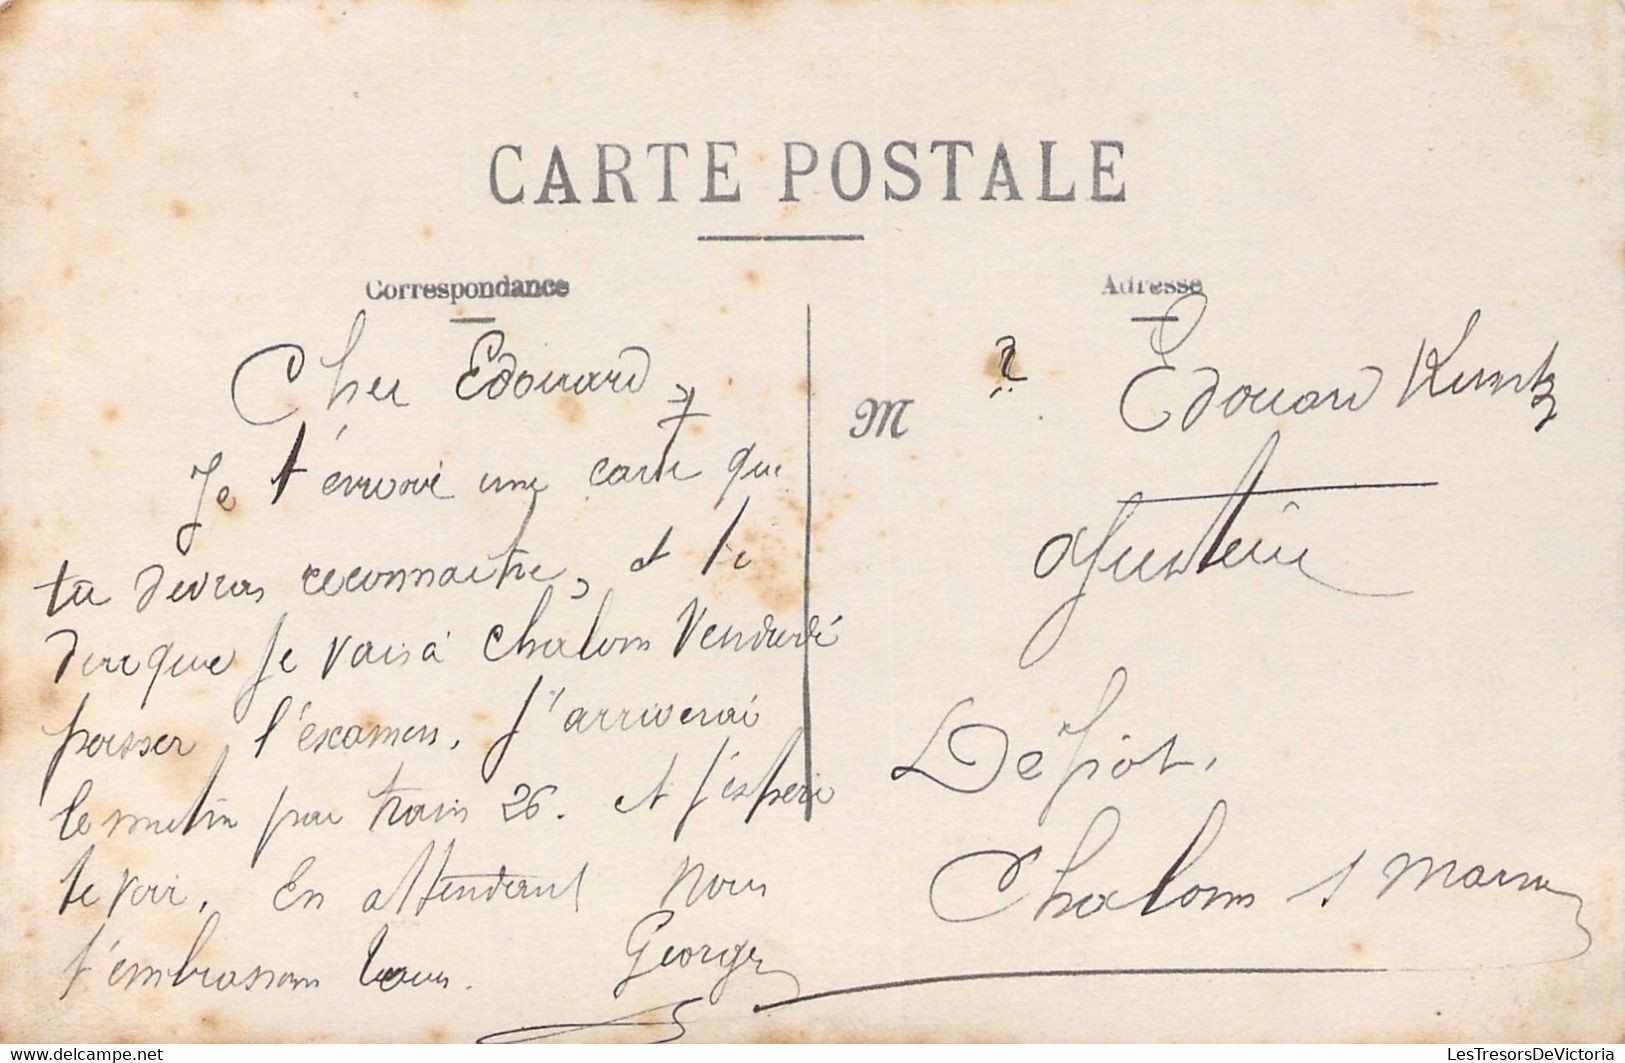 CARTE POSTALE
Correspondance
Cher Edouard,
Je t'envoie une carte que
tu devras reconnaitre, et te
dire que je vais à Chalons Vendredi
passer l'examen. J'arriverai
le matin par train 26. et j'espère
te voir. En attendant nous
t'embrassons tous. Georges
Adresse
M Edouard Kuntz
Ajusteur
Dépôt.
Chalons s Marne
LesTresorsDeVictoria
delcampe.net